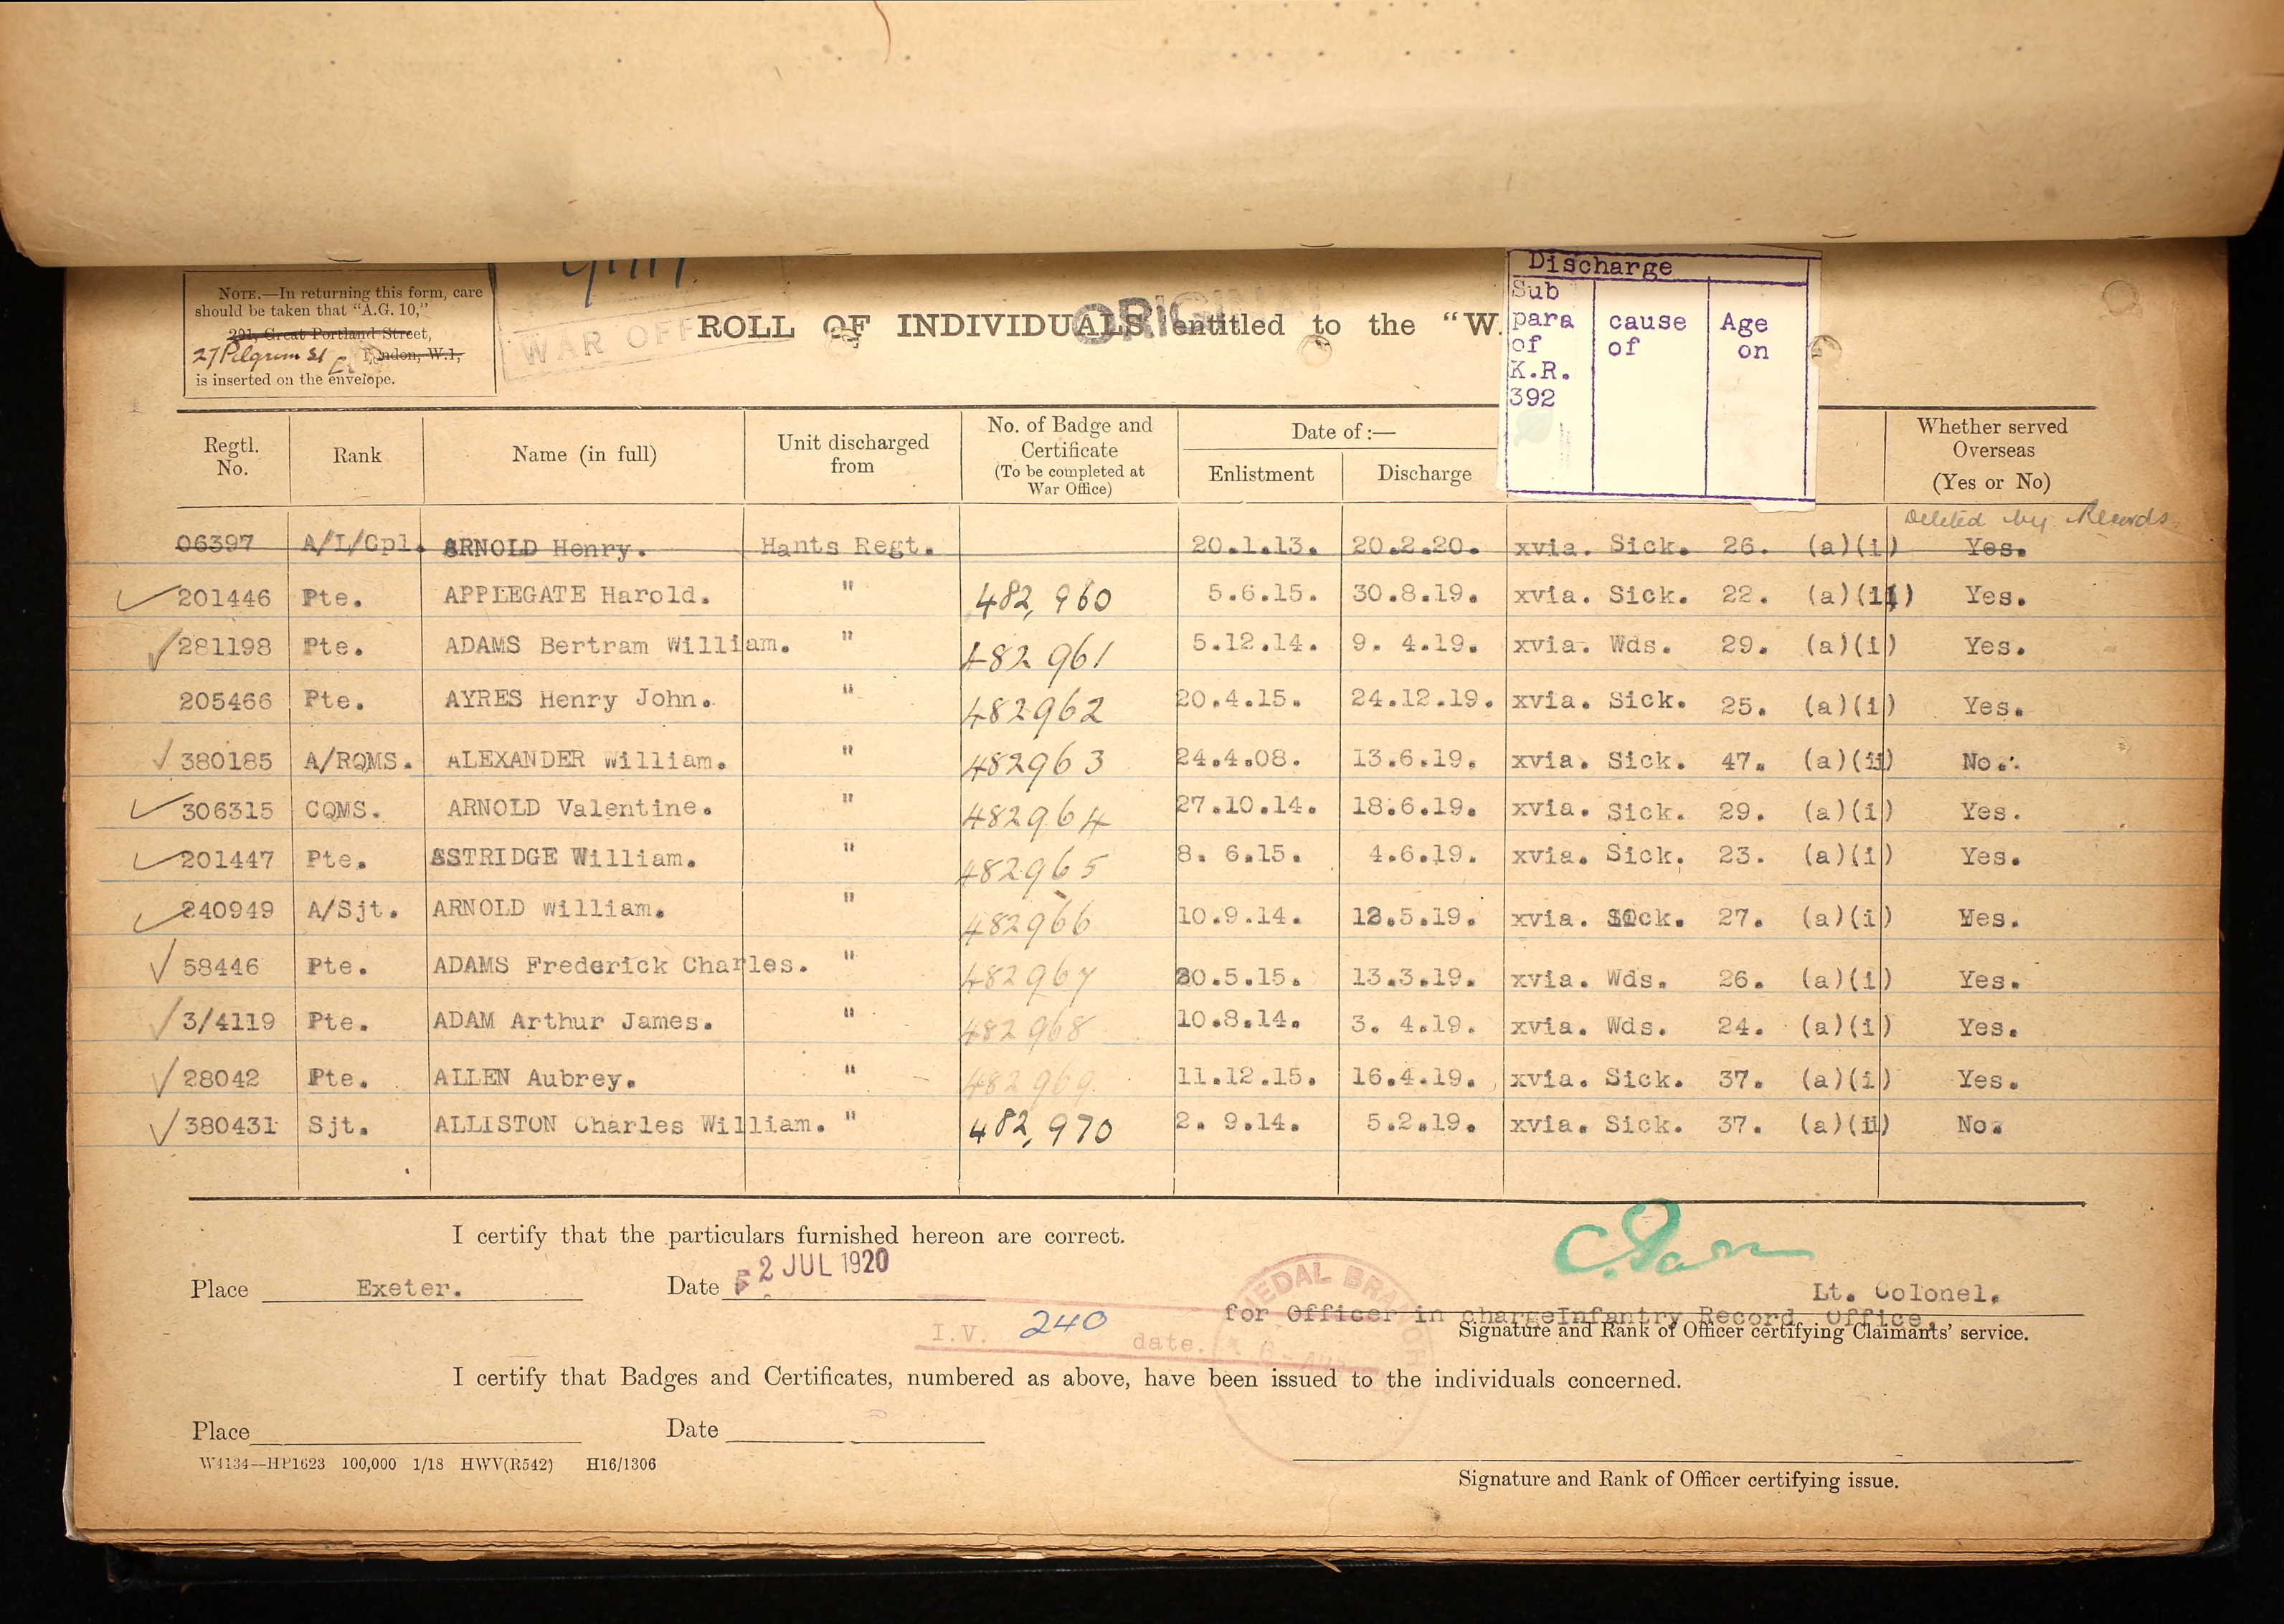 NOTE.—In returning this form, care
should be taken that "A.G. 10,"
291, Great Portland Street,
27 Pilgrim St London, W.1,
is inserted on the envelope.
WAR OFF
ORIGIN
ROLL OF INDIVIDUALS entitled to the "W.
Discharge
Sub para of K.R. 392 cause of Age on
Regtl. No. Rank Name (in full) Unit discharged from No. of Badge and Certificate (To be completed at War Office) Date of :— Enlistment Discharge Whether served Overseas (Yes or No)
Deleted by Records
06397 A/L/Cpl. ARNOLD Henry. Hants Regt. 20.1.13. 20.2.20. xvia. Sick. 26. (a)(i) Yes.
201446 Pte. APPLEGATE Harold. " 482,960 5.6.15. 30.8.19. xvia. Sick. 22. (a)(ii) Yes.
281198 Pte. ADAMS Bertram William. " 482961 5.12.14. 9. 4.19. xvia. Wds. 29. (a)(i) Yes.
205466 Pte. AYRES Henry John. " 482962 20.4.15. 24.12.19. xvia. Sick. 25. (a)(i) Yes.
380185 A/RQMS. ALEXANDER William. " 482963 24.4.08. 13.6.19. xvia. Sick. 47. (a)(ii) No.
306315 CQMS. ARNOLD Valentine. " 482964 27.10.14. 18.6.19. xvia. Sick. 29. (a)(i) Yes.
201447 Pte. ASTRIDGE William. " 482965 8. 6.15. 4.6.19. xvia. Sick. 23. (a)(i) Yes.
240949 A/Sjt. ARNOLD William. " 482966 10.9.14. 12.5.19. xvia. Sick. 27. (a)(i) Yes.
58446 Pte. ADAMS Frederick Charles. " 482967 30.5.15. 13.3.19. xvia. Wds. 26. (a)(i) Yes.
3/4119 Pte. ADAM Arthur James. " 482968 10.8.14. 3. 4.19. xvia. Wds. 24. (a)(i) Yes.
28042 Pte. ALLEN Aubrey. " 482969 11.12.15. 16.4.19. xvia. Sick. 37. (a)(i) Yes.
380431 Sjt. ALLISTON Charles William. " 482,970 2. 9.14. 5.2.19. xvia. Sick. 37. (a)(ii) No.
I certify that the particulars furnished hereon are correct.
Place Exeter. Date 2 JUL 1920
Lt. Colonel.
for Officer in charge Infantry Record Office.
Signature and Rank of Officer certifying Claimants' service.
MEDAL BRANCH
I.V. 240 date.
I certify that Badges and Certificates, numbered as above, have been issued to the individuals concerned.
Place Date
W4134—HP1623 100,000 1/18 HWV(R542) H16/1306
Signature and Rank of Officer certifying issue.